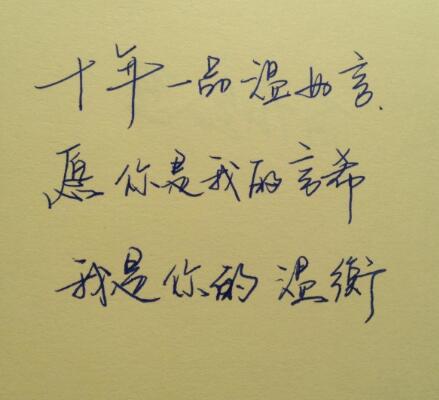 十年一品温如言.
愿你是我的言希
我是你的温衡